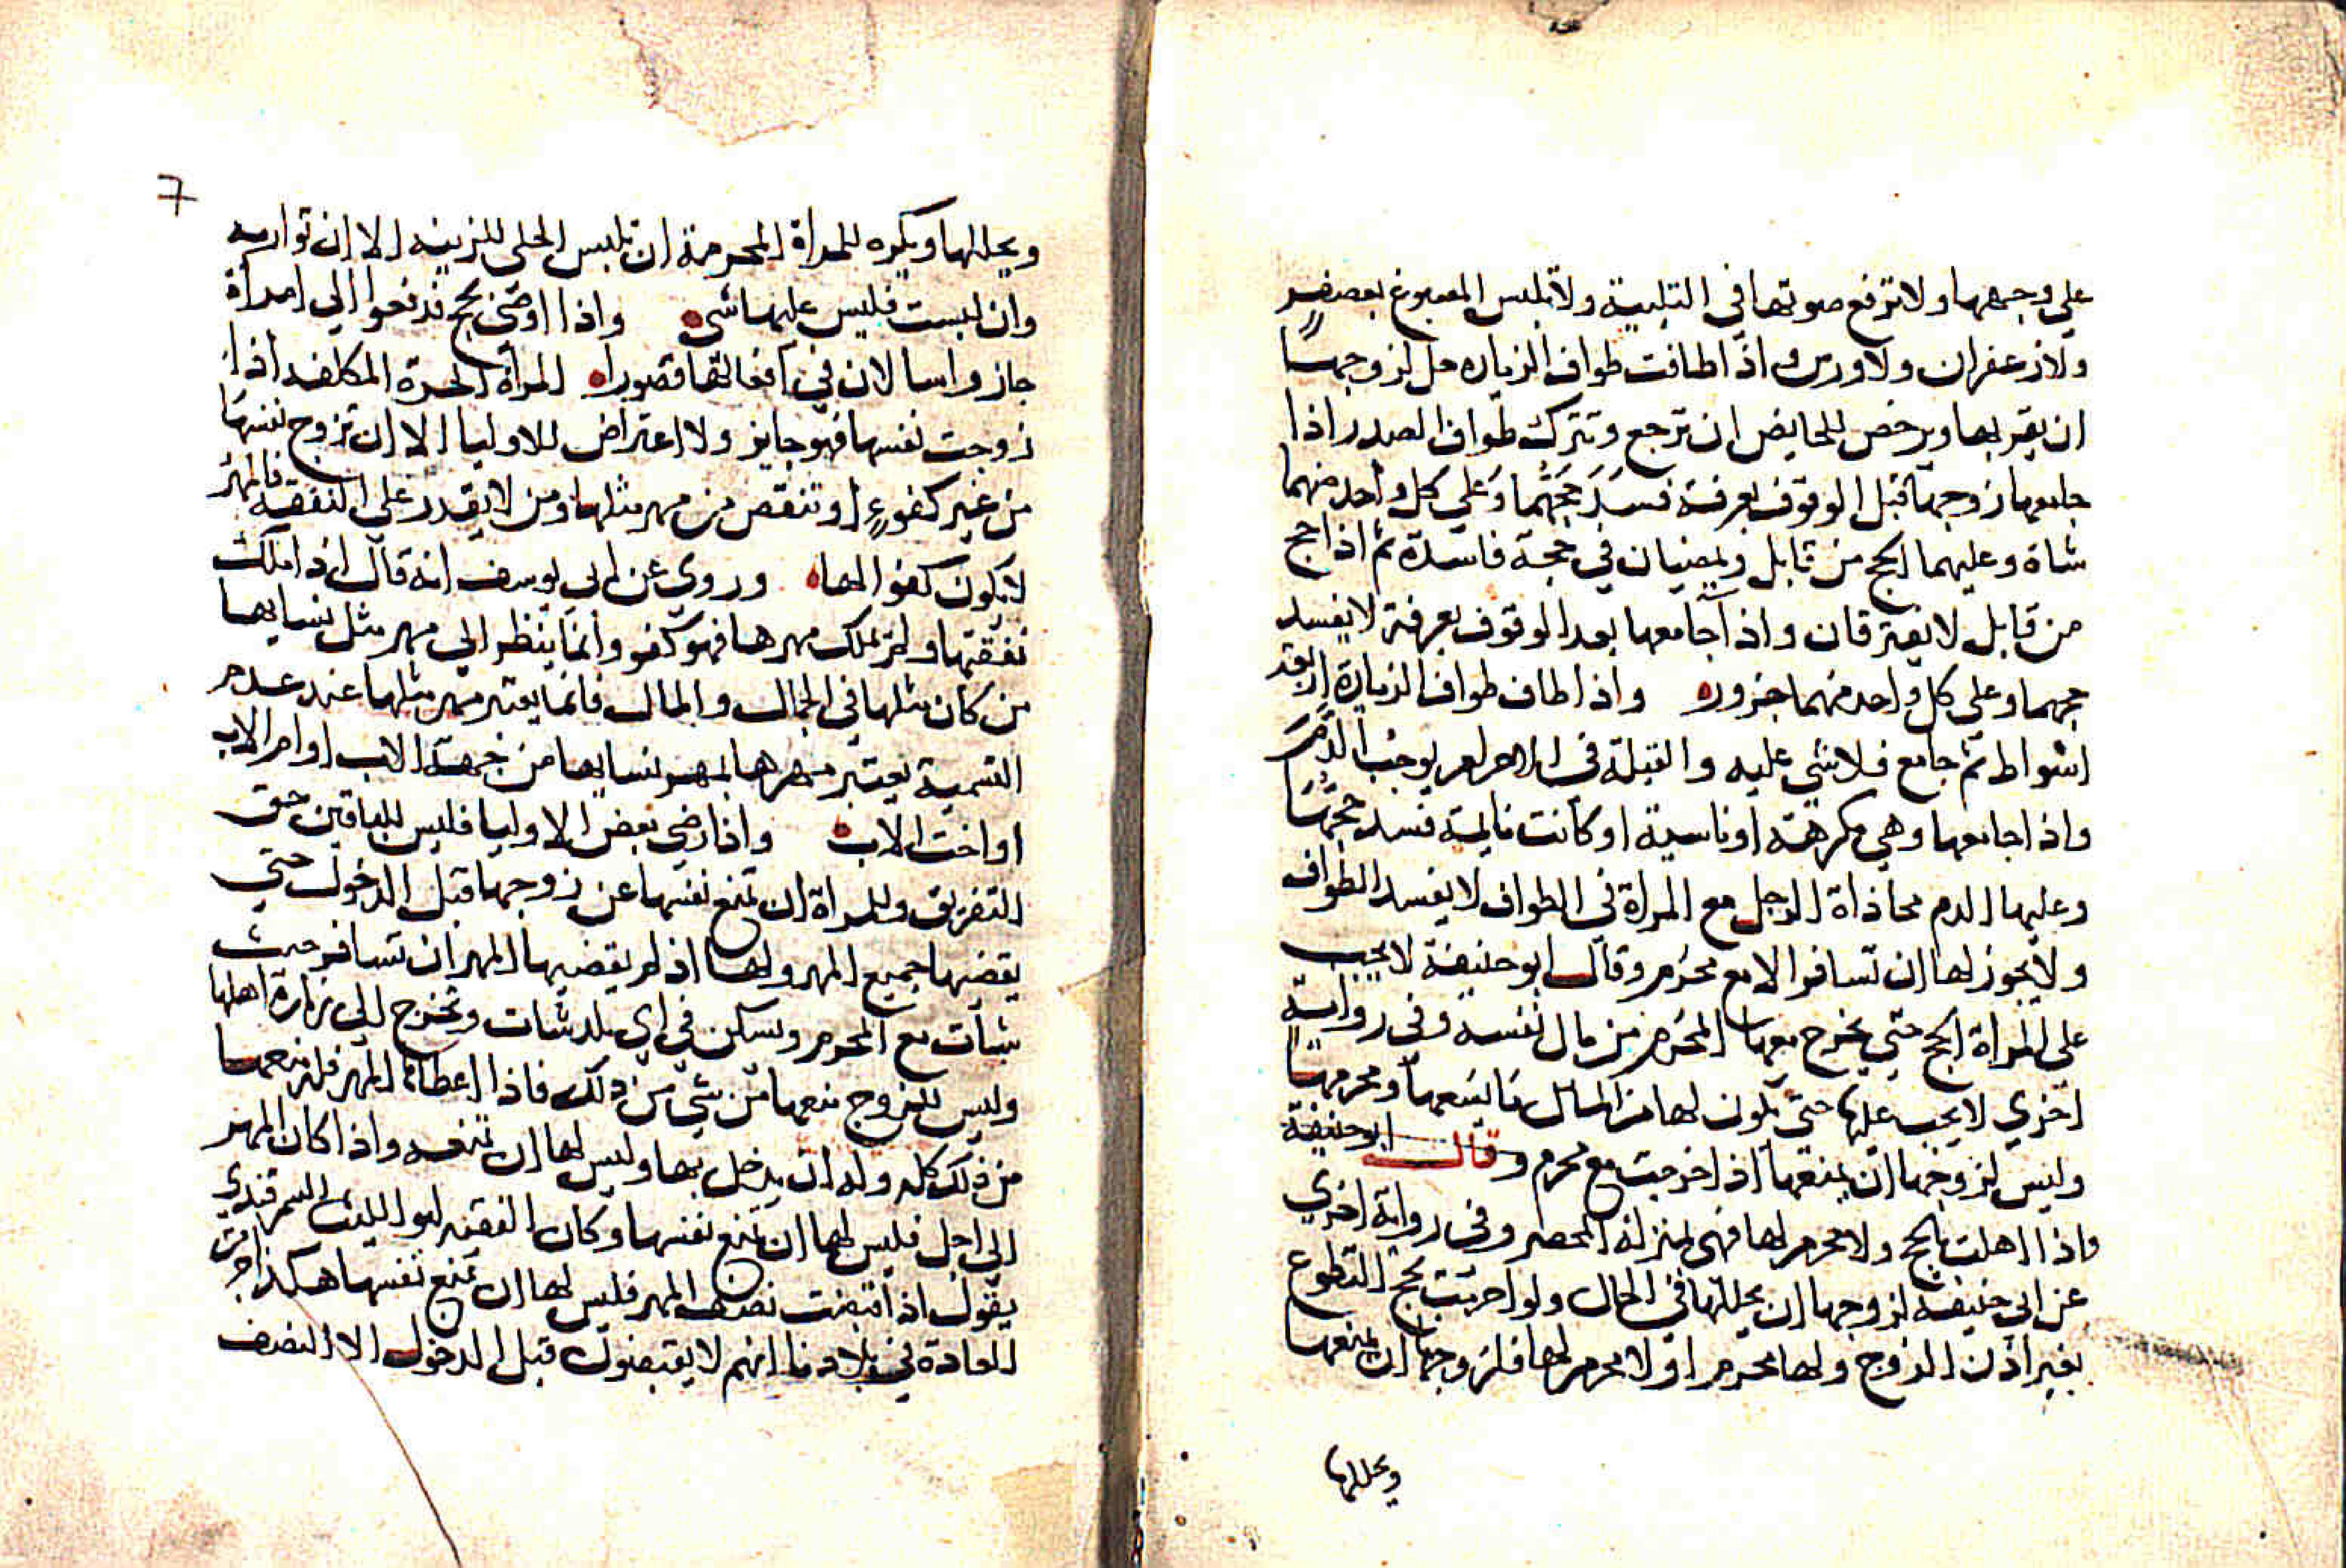 علي وجهها ولا ترفع صوتها في التلبية ولا تلبس المصبوغ بعصفر
ولا زعفران ولا ورس اذا طافت طواف الزياره حل لزوجها
ان يقربها ويرخص للحايض ان ترجع وتترك طواف الصدر اذا
جامعها زوجها قبل الوقوف بعرفة فسد حجهما وعلي كل واحد منهما
شاة وعليهما الحج من قابل ويمضيان في حجة فاسدة ثم اذا حج
من قابل لا يفترقان واذا جامعها بعد الوقوف بعرفة لا يفسد
حجهما وعلي كل واحد منهما جزوره واذا طاف طواف الزيارة اربعة
اشواط ثم جامع فلا شي عليه والقبلة في الاحرام يوجب الدم
واذا جامعها وهي مكرهة او ناسية او كانت نايمة فسد حجتها
وعليها الدم محاذاة الرجل مع المراة في الطواف لا يفسد الطواف
ولا يجوز لها ان تسافر الا مع محرم وقال ابو حنيفة لا يجب
على المراة الحج حتي يخرج معها المحرم من مال نفسه وفي رواية
اخري لا يجب عليها حتى يكون لها من المال ما يسعها ومحرمها
وليس لزوجها ان يمنعها اذا خرجت مع محرم وقال ابو حنيفة
واذا اهلت بالحج ولا محرم لها فهي بمنزلة المحصر وفي رواية اخري
عن ابي حنيفة لزوجها ان يحللها في الحال ولو احرمت بحج التطوع
بغير اذن الزوج ولها محرم او لا محرم لها فلزوجها ان يمنعها
ويحللها
7
ويحللها ويكره للمراة المحرمة ان تلبس الحلى للزينه الا ان تواريه
وان لبست فليس عليها شي واذا اوصى بحج فدفعوا الي امراة
جاز واسا لان في افعالها قصورا المراة الحرة المكلفه اذا
زوجت نفسها فهو جايز ولا اعتراض للاوليا الا ان تزوج نفسها
من غير كفوء او تنقص من مهر مثلها ومن لا يقدر علي النفقة فالمهر
لا يكون كفوا لها وروى عن ابي يوسف انه قال اذا ملك
نفقتها ولم يملك مهرها فهو كفو وانما ينظر الي مهر مثل نسايها
من كان مثلها في الجمال والمال فانما يعتبر مهر مثلها عند عدم
التسمية يعتبر مهرها بمهر نسايها من جهة الاب او ام الاب
او اخت الاب واذا رضي بعض الاوليا فليس للباقين حق
التفريق وللمراة ان تمنع نفسها عن زوجها قبل الدخول حتي
يقضيها جميع المهر ولها اذا لم يقضيها المهر ان تسافر حيث
شات مع المحرم وتسكن في اي بلد شات وتخرج الى زيارة اهلها
وليس للزوج منعها من شي من ذلك فاذا اعطاها المهر فله منعها
من ذلك كله وله ان يدخل بها وليس لها ان تمنعه واذا كان المهر
الى اجل فليس لها ان تمنع نفسها وكان الفقيه ابو الليث السمرقندي
يقول اذا قبضت نصف المهر فليس لها ان تمنع نفسها هكذا جرت
العادة في بلادنا انهم لا يقبضون قبل الدخول الا النصف